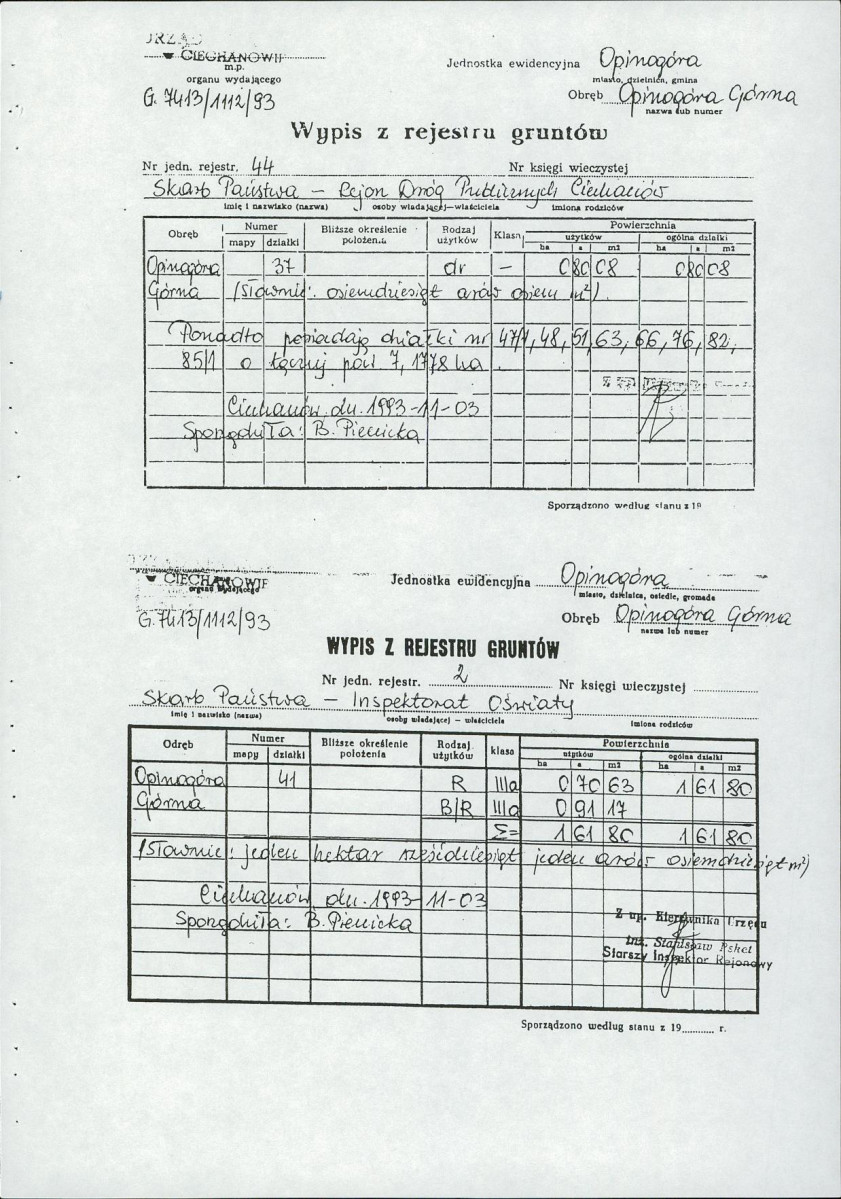 URZĄD
w CIECHANOWIE
m.p.
organu wydającego
G. 7413/1112/93
Jednostka ewidencyjna Opinogóra
miasto, dzielnica, gmina
Obręb Opinogóra Górna
nazwa lub numer
Wypis z rejestru gruntów
Nr jedn. rejestr. 44 Nr księgi wieczystej
Skarb Państwa – Rejon Dróg Publicznych Ciechanów
imię i nazwisko (nazwa) osoby władającej—właściciela imiona rodziców
Obręb Numer mapy działki Bliższe określenie położenia Rodzaj użytków Klasa Powierzchnia użytków ha a m2 ogólna działki ha a m2
Opinogóra 37 dr – 0 80 08 0 80 08
Górna /Słownie: osiemdziesiąt arów osiem m²/.
Ponadto posiadają działki nr 47/1, 48, 51, 63, 66, 76, 82,
85/1 o łącznej pow 7,1778 ha.
Ciechanów, dn. 1993-11-03
Sporządziła: B. Pienicka
Sporządzono według stanu z 19
w CIECHANOWIE
organu wydającego
G. 7413/1112/93
Jednostka ewidencyjna Opinogóra
miasto, dzielnica, osiedle, gromada
Obręb Opinogóra Górna
nazwa lub numer
WYPIS Z REJESTRU GRUNTÓW
Nr jedn. rejestr. 2 Nr księgi wieczystej
Skarb Państwa – Inspektorat Oświaty
imię i nazwisko (nazwa) osoby władającej — właściciela imiona rodziców
Odręb Numer mapy działki Bliższe określenie położenia Rodzaj użytków klasa Powierzchnia użytków ha a m2 ogólna działki ha a m2
Opinogóra 41 R IIIa 0 70 63 1 61 80
Górna B/R IIIa 0 91 17
Σ= 1 61 80 1 61 80
/Słownie: jeden hektar sześćdziesiąt jeden arów osiemdziesiąt m²/
Ciechanów dn. 1993-11-03
Sporządziła: B. Pienicka
Z up. Kierownika Urzędu
inż. Stanisław
Starszy Inspektor Rejonowy
Sporządzono według stanu z 19 r.